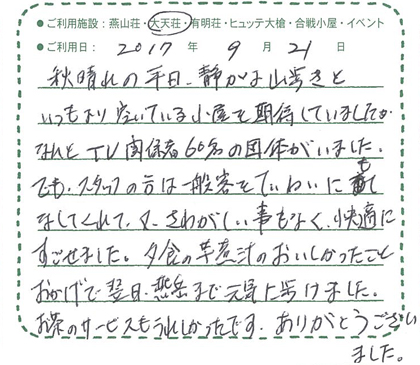 ●ご利用施設：燕山荘・大天荘・有明荘・ヒュッテ大槍・合戦小屋・イベント
●ご利用日： 2017 年 9 月 21 日
秋晴れの平日、静かな山歩きと
いつもより空いている小屋を期待していましたが
なんと TV関係者60名の団体がいました。
でも、スタッフの方は一般客をていねいにもて
なしてくれて、又、さわがしい事もなく、快適に
すごせました。夕食の芋煮汁のおいしかったこと
おかげで翌日、燕岳まで元気に歩けました。
お茶のサービスもうれしかったです。ありがとうござい
ました。